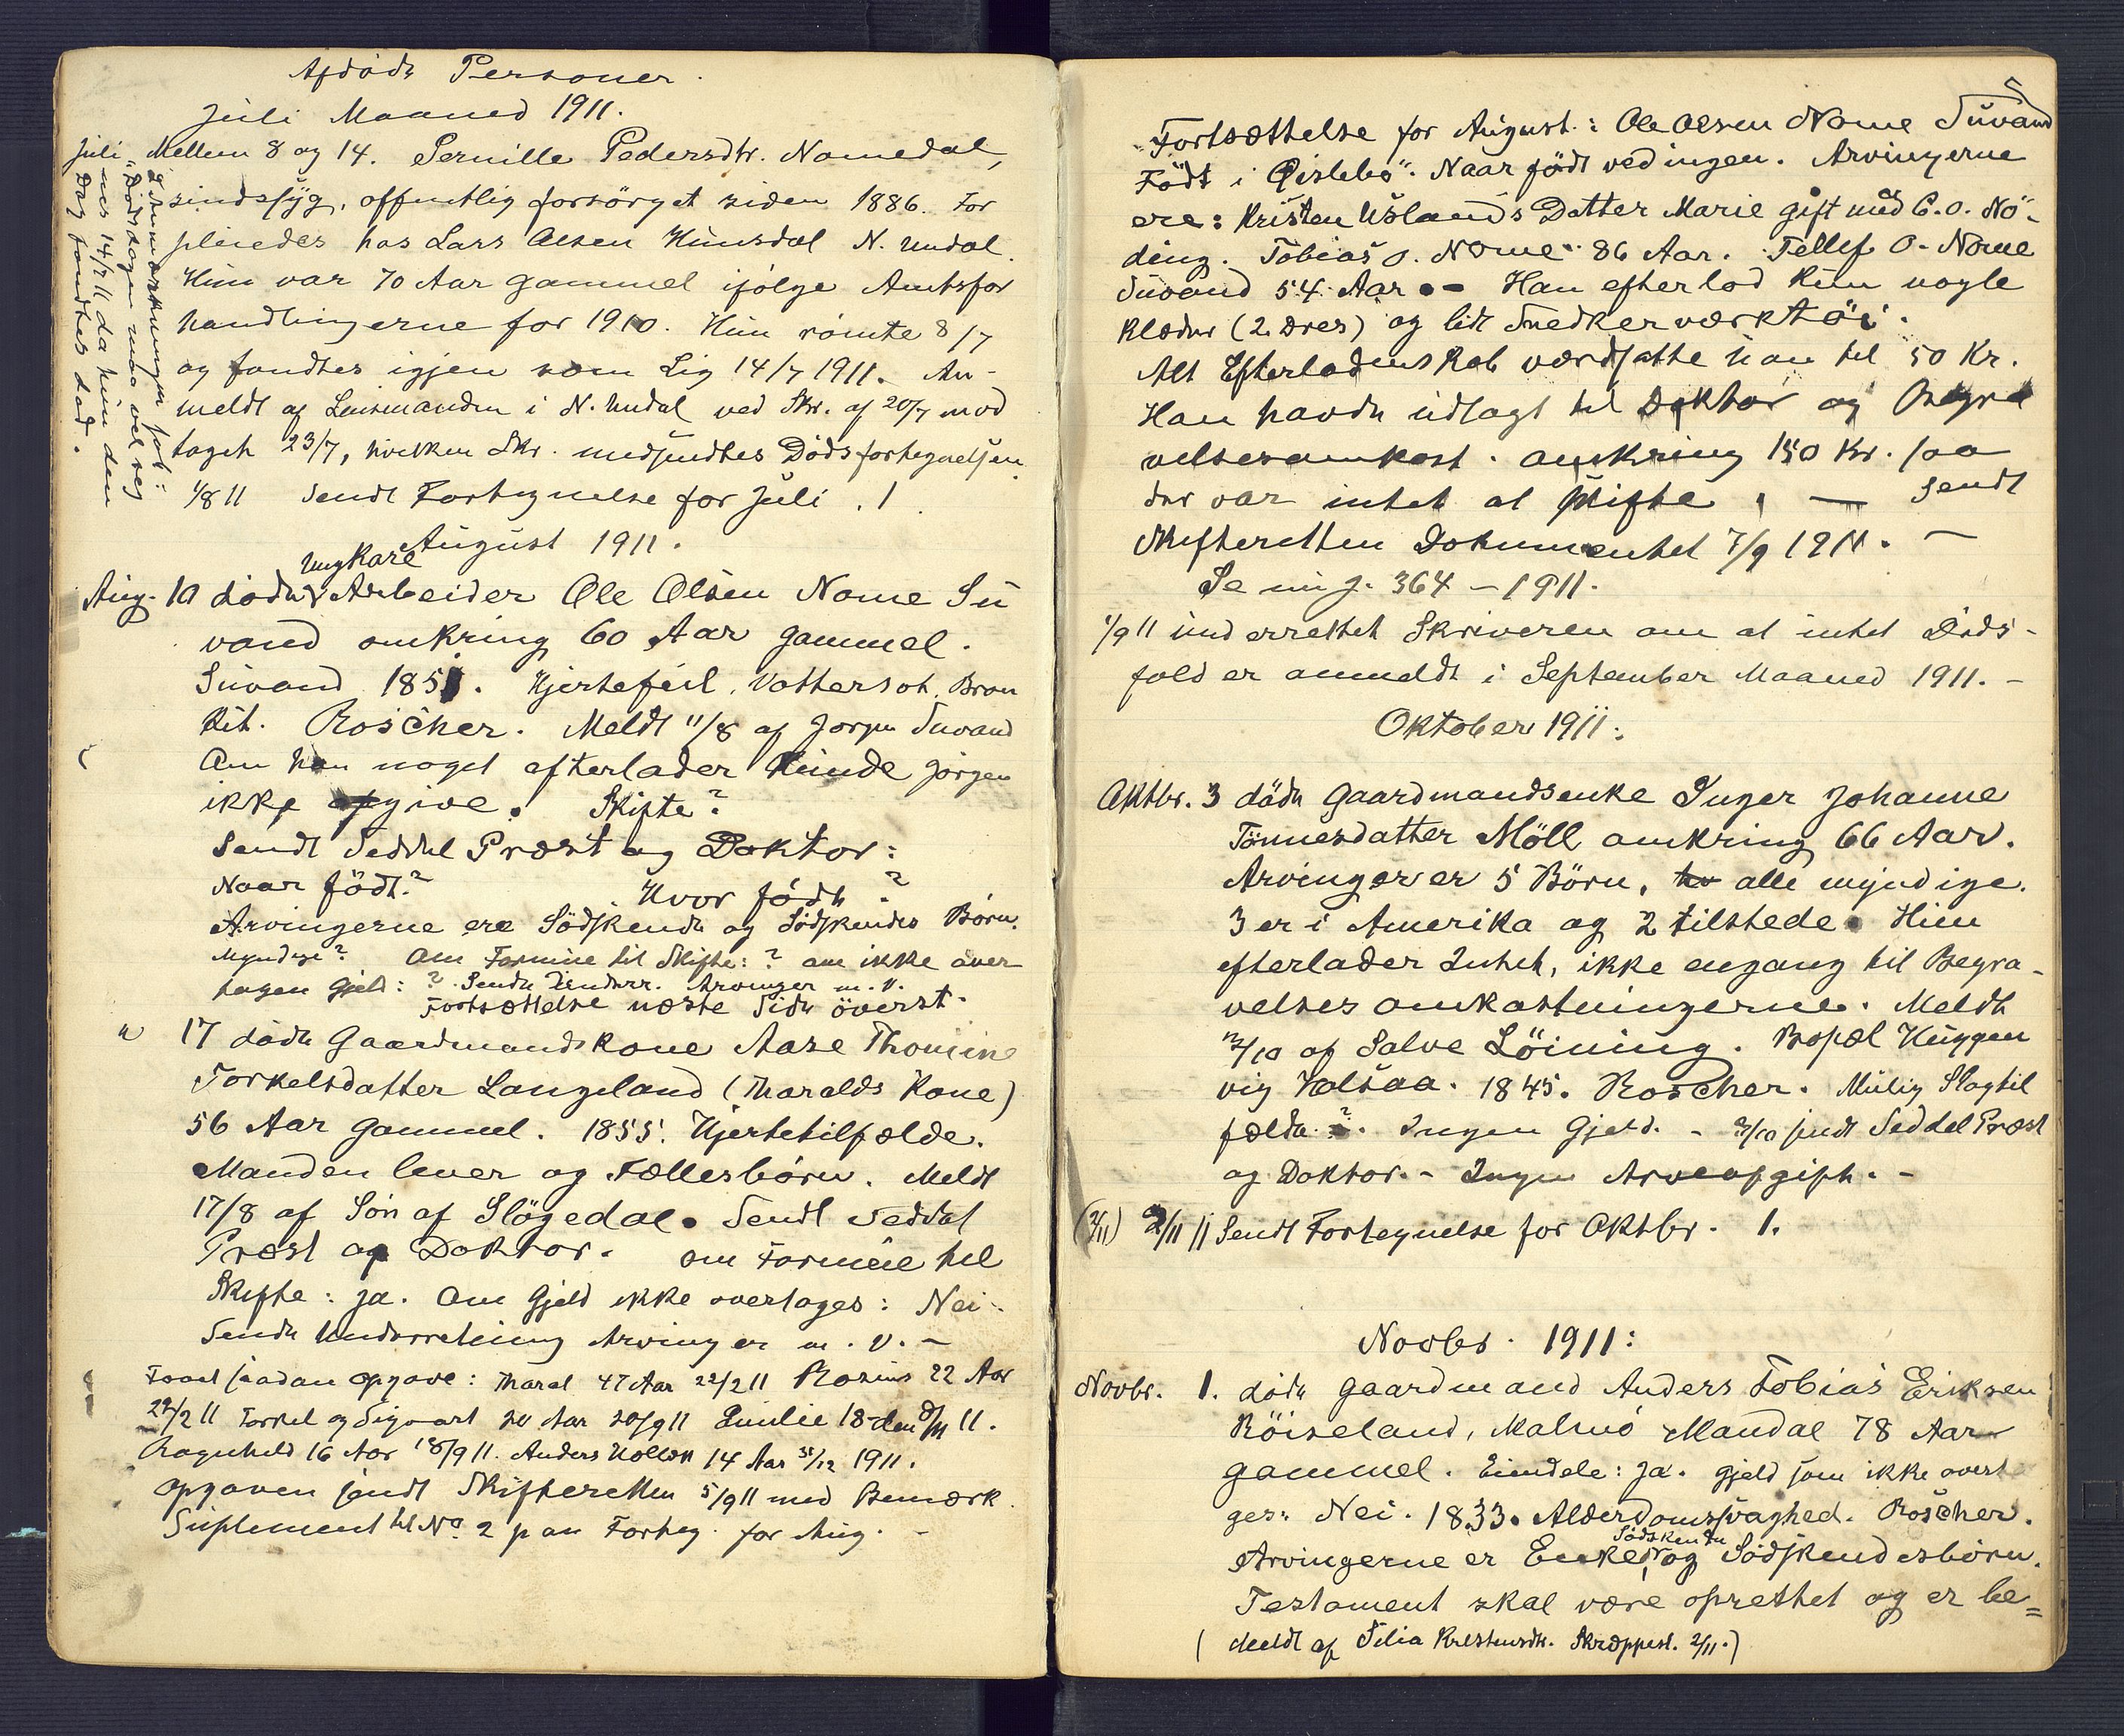 Afdöde Personer.
Juli Maaned 1911.
Juli. Mellem 8 og 14. Pernille Pedersdtr. Nomedal,
sindssyg, offentlig forsörget siden 1886. For
pleiedes hos Lars Olsen Hunsdal N. Undal.
Hun var 70 Aar gammel ifölge Amtsfor
handlingerne for 1910. Hun römte 8/7
og fandtes igjen som Lig 14/7 1911. An-
meldt af Lensmanden i N. Undal ved Skr. af 20/7 mod
taget 23/7, hvilken Skr. medsendtes Dödsfortegnelsen
1/8 11 Sendt Fortegnelse for Juli . 1
I Anmærkningen job:
Dödsdagen maa vel reg
nes 14/7 11 da hun den
Dag fandtes död.
August 1911.
Ungkare
Aug. 10 döde Arbeider Ole Olsen Nome Su
vand omkring 60 Aar gammel.
Suvand 1851. Hjertefeil. Vattersot. Bron
kit. Roscher. Meldt 11/8 af Jörgen Suvand
Om han noget efterlader kunde Jörgen
ikke opgive. Skifte?
Sendt Seddel Præst og Doktor:
Naar födt? Hvor födt?
Arvingerne ere Södskende og Södskendes Börn.
Myndige? Om Formue til Skifte: ? om ikke over
tagen Gjeld: ? Sende Underr. Arvinger m. v.
Fortsættelse næste Side överst.
" 17 döde Gaardmandskone Aase Thomine
Torkelsdatter Langeland (Haralds Kone)
56 Aar gammel. 1855. Hjertetilfælde.
Manden lever og Fællesbörn. Meldt
17/8 af Sön af Slögedal. Sendt Seddel
Præst og Doktor. om Formue til
Skifte: Ja. Om Gjeld ikke overtages: Nei.
Sende Underretning Arvinger m. v. -
Faaet saadan opgave: Haral 47 Aar 22/2 11 Rosius 22 Aar
22/2 11 Torkel og Sigvart 20 Aar 20/9 11 Emilie 18 den 8/11 11.
Ragnhild 16 Aar 18/9 11. Anders 14 Aar 31/12 1911.
Opgaven sendt Skifteretten 5/9 11 med Bemærk.
Suplement til No. 2 paa Forteg. for Aug. -
5
Fortsættelse for August: Ole Olsen Nome Suvand
Födt i Öislebö. Naar födt ved ingen. Arvingerne
ere: Kristen Uslands Datter Marie gift med C. O. Nö-
ding. Tobias O. Nome 86 Aar. Tellef O. Nome
Suvand 54 Aar. - Han efterlod kun nogle
Klæder (2 Dres) og lidt Snedkerværktöi.
Alt Efterladenskab værdsatte han til 50 Kr.
Han havde udlagt til Doktor og Begra
velsesomkost. omkring 150 Kr. saa
der var intet at skifte. - Sendt
Skifteretten Dokumentet 7/9 1911. -
Se min J. 364 - 1911.
1/9 11 underrettet Skriveren om at intet Döds-
fald er anmeldt i September Maaned 1911. -
Oktober 1911:
Oktbr. 3 döde Gaardmandsenke Inger Johanne
Tönnesdatter Möll omkring 66 Aar.
Arvinger er 5 Börn, alle myndige.
3 er i Amerika og 2 tilstede. Hun
efterlader Intet, ikke engang til Begra-
velses omkostningerne. Meldt
3/10 af Salve Löining. Bopæl Huggen
vig Halsaa. 1845. Roscher. Mulig Slagtil
fælde?. Ingen Gjeld. - 3/10 sendt Seddel Præst
og Doktor. - Ingen Arveafgift. -
(2/11) 2/11 11 Sendt Fortegnelse for Oktbr. 1.
Novbr. 1911:
Novbr. 1. döde Gaardmand Anders Tobias Eriksen
Röiseland, Malmö Mandal 78 Aar
gammel. Eiendele: Ja. Gjeld som ikke overta
ges: Nei. 1833. Alderdomssvaghed. Roscher.
Södskende
Arvingerne er Enke, og Södskendesbörn.
Testament skal være oprettet og er be=
(Meldt af Silia Kristensdtr. Skroppest. 2/11.)